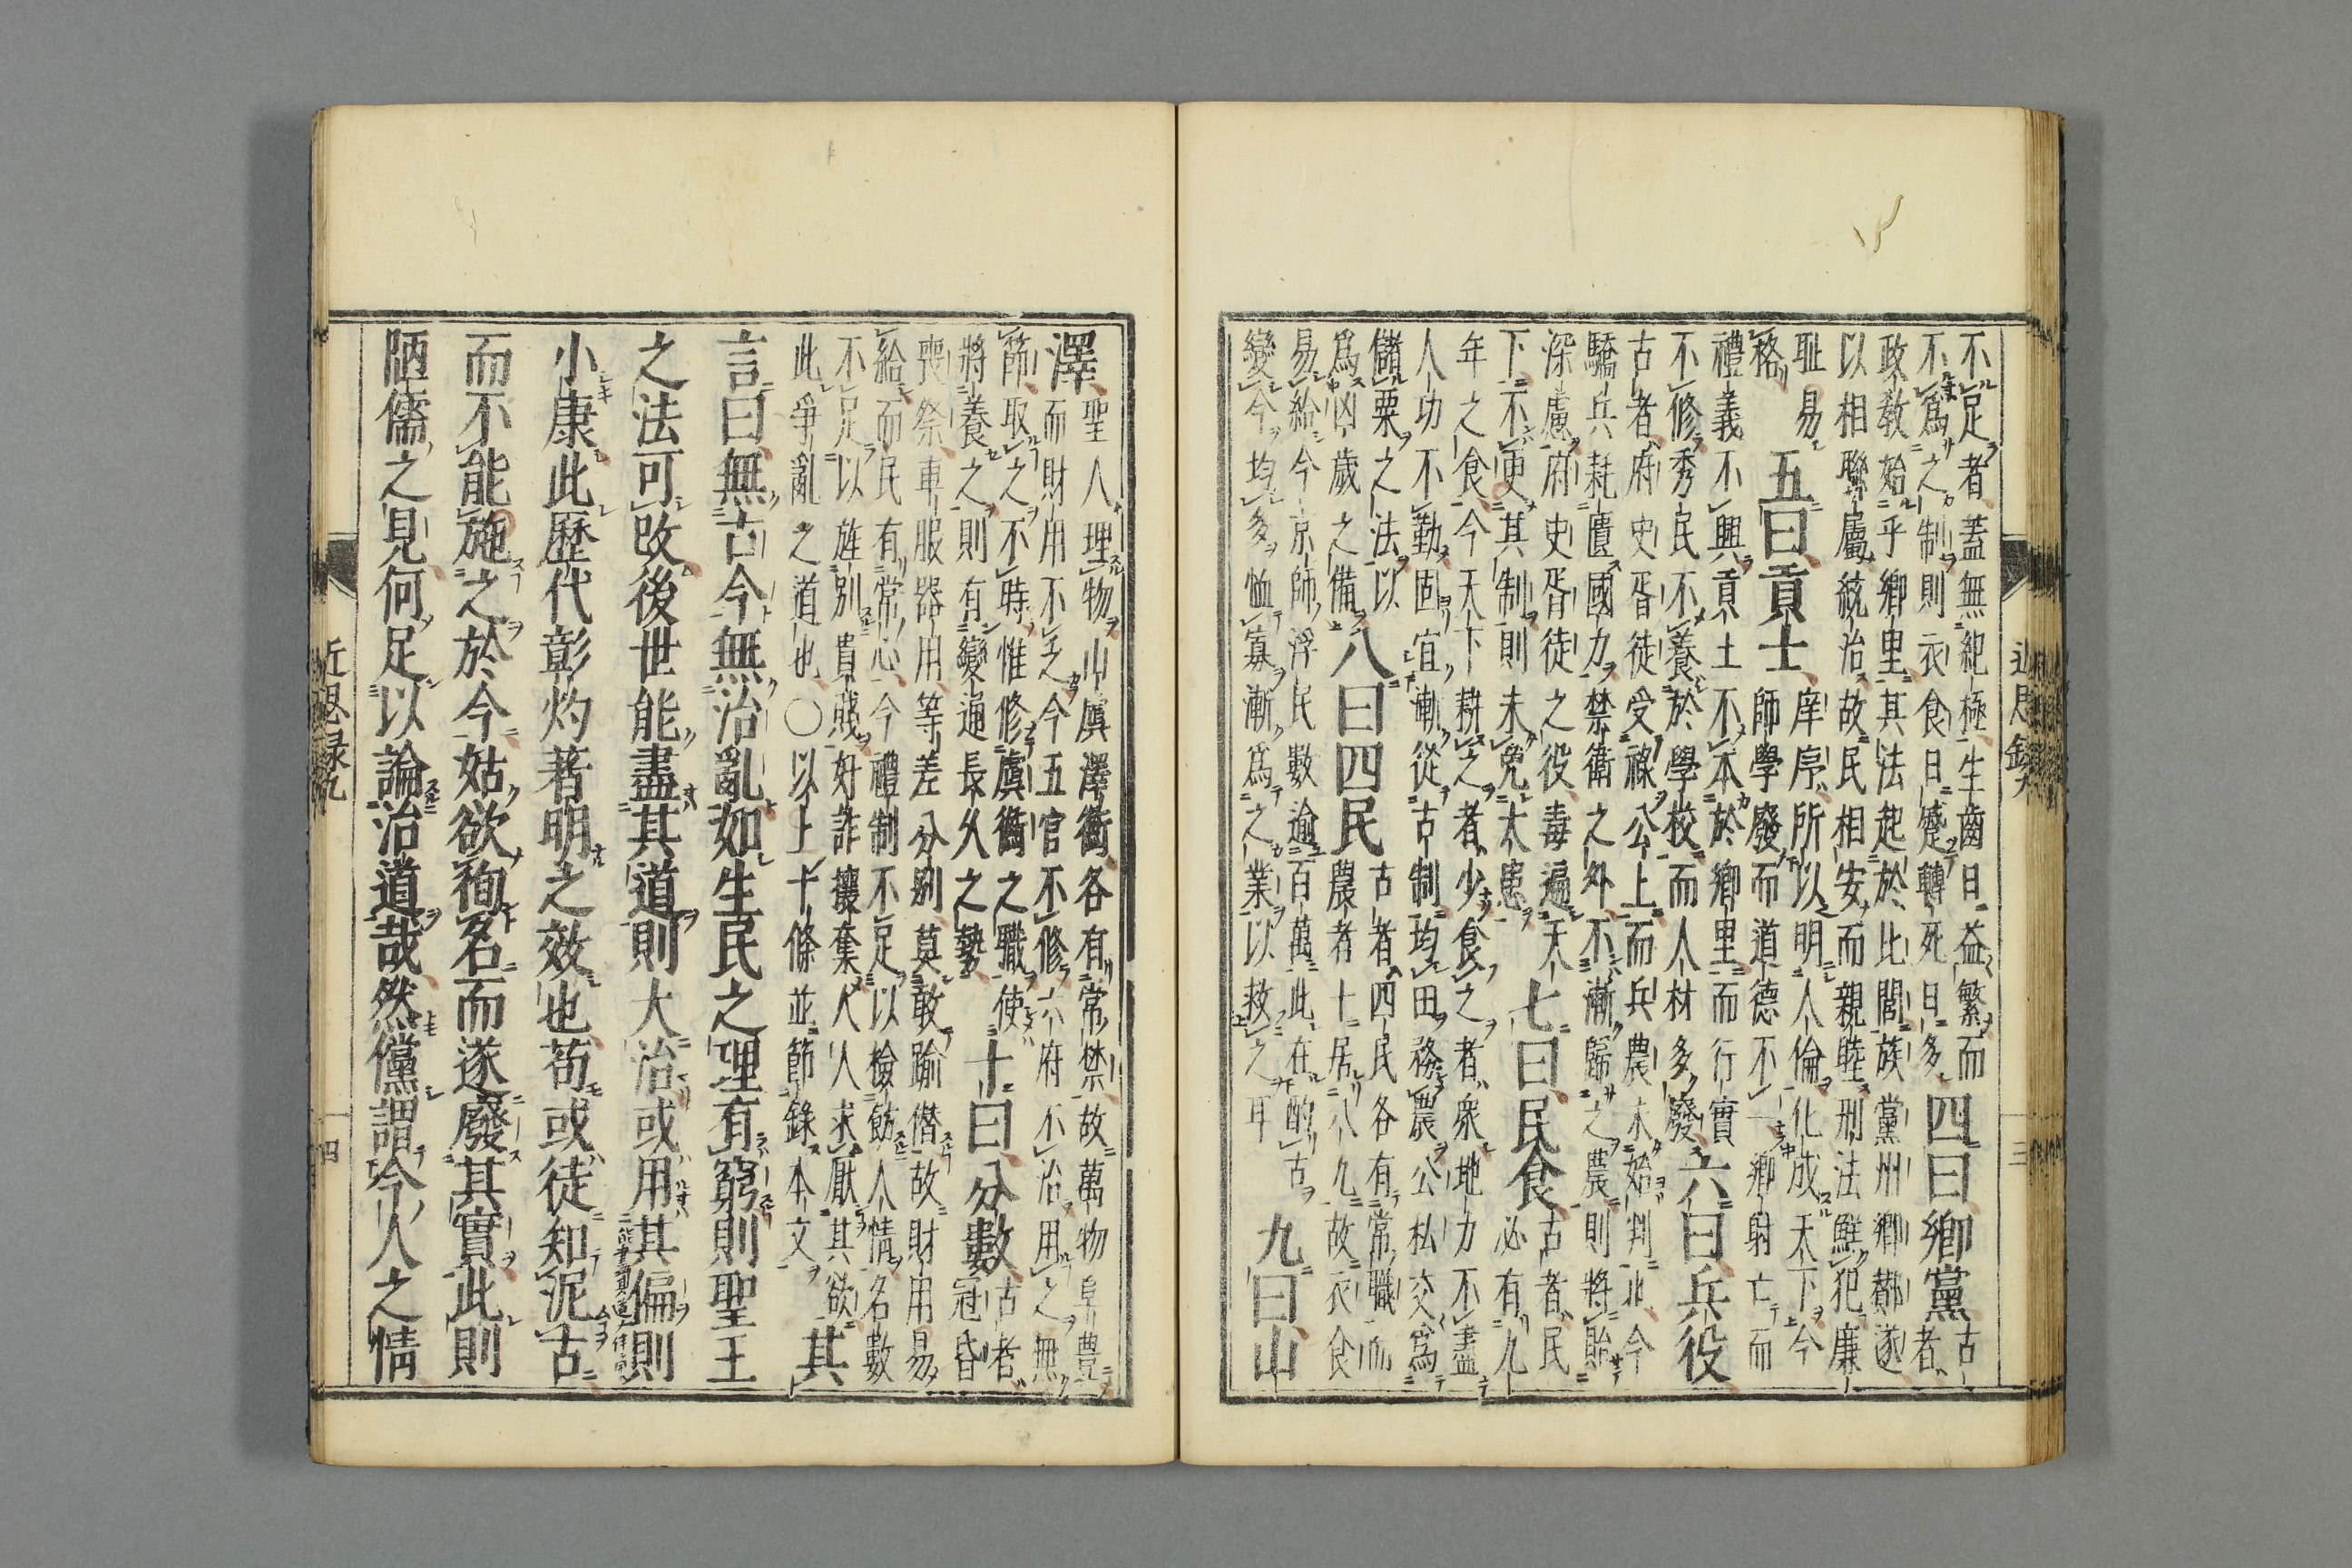 不足者蓋無紀極生齒日益繁而
不爲之制則衣食日蹙轉死日多
四曰鄉黨
古
者
政敎始乎鄉里其法起於比閭族黨州鄉酇遂
以相聯屬統治故民相安而親睦刑法鮮犯廉
耻易
格
五曰貢士
庠序所以明人倫化成天下今
師學廢而道德不一鄉射亡而
禮義不興貢士不本於鄉里而行實
不修秀民不養於學校而人材多廢
六曰兵役
古者府史胥徒受祿公上而兵農未始判也今
驕兵耗匱國力禁衛之外不漸歸之農則將貽
深慮府史胥徒之役毒遍天
下不更其制則未免大患
七曰民食
古者民
必有九
年之食今天下耕之者少食之者衆地力不盡
人功不勤固宜漸從古制均田務農公私交爲
儲粟之法以
爲凶歲之備
八曰四民
古者四民各有常職而
農者十居八九故衣食
易給今京師浮民數逾百萬此在酌古
變今均多恤寡漸爲之業以救之耳
九曰山
澤
聖人理物山虞澤衡各有常禁故萬物阜豐
而財用不乏今五官不修六府不治用之無
節取之不時惟修虞衡之職使
將養之則有變通長久之勢
十曰分數
古者
冠昏
喪祭車服器用等差分別莫敢踰僭故財用易
給而民有常心今禮制不足以檢飭人情名數
不足以旌別貴賤好詐攘奪人人求厭其欲
此爭亂之道也〇以上十條並節錄本文
其
言曰無古今無治亂如生民之理有窮則聖王
之法可改後世能盡其道則大治或用其偏則
小康此歷代彰灼著明之效也苟或徒知泥古
而不能施之於今姑欲徇名而遂廢其實此則
陋儒之見何足以論治道哉然儻謂今人之情
近思録九
四